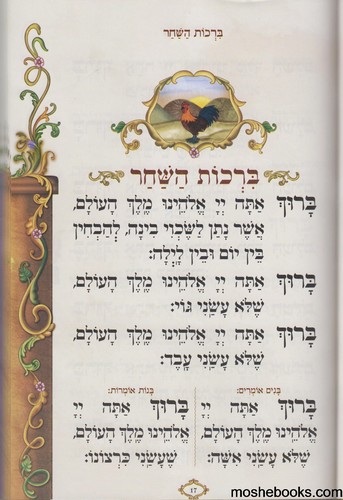 בִּרְכוֹת הַשַּׁחַר
בִּרְכוֹת הַשַּׁחַר
בָּרוּךְ אַתָּה יְיָ אֱלֹהֵֽינוּ מֶֽלֶךְ הָעוֹלָם,
אֲשֶׁר נָתַן לַשֶּׂכְוִי בִינָה, לְהַבְחִין
בֵּין יוֹם וּבֵין לָֽיְלָה:
בָּרוּךְ אַתָּה יְיָ אֱלֹהֵֽינוּ מֶֽלֶךְ הָעוֹלָם,
שֶׁלֹּא עָשַֽׂנִי גּוֹי:
בָּרוּךְ אַתָּה יְיָ אֱלֹהֵֽינוּ מֶֽלֶךְ הָעוֹלָם,
שֶׁלֹּא עָשַֽׂנִי עָֽבֶד:
בָּנִים אוֹמְרִים:
בָּרוּךְ אַתָּה יְיָ
אֱלֹהֵֽינוּ מֶֽלֶךְ הָעוֹלָם,
שֶׁלֹּא עָשַֽׂנִי אִשָּׁה:
בָּנוֹת אוֹמְרוֹת:
בָּרוּךְ אַתָּה יְיָ
אֱלֹהֵֽינוּ מֶֽלֶךְ הָעוֹלָם,
שֶׁעָשַֽׂנִי כִּרְצוֹנוֹ:
17
moshebooks.com